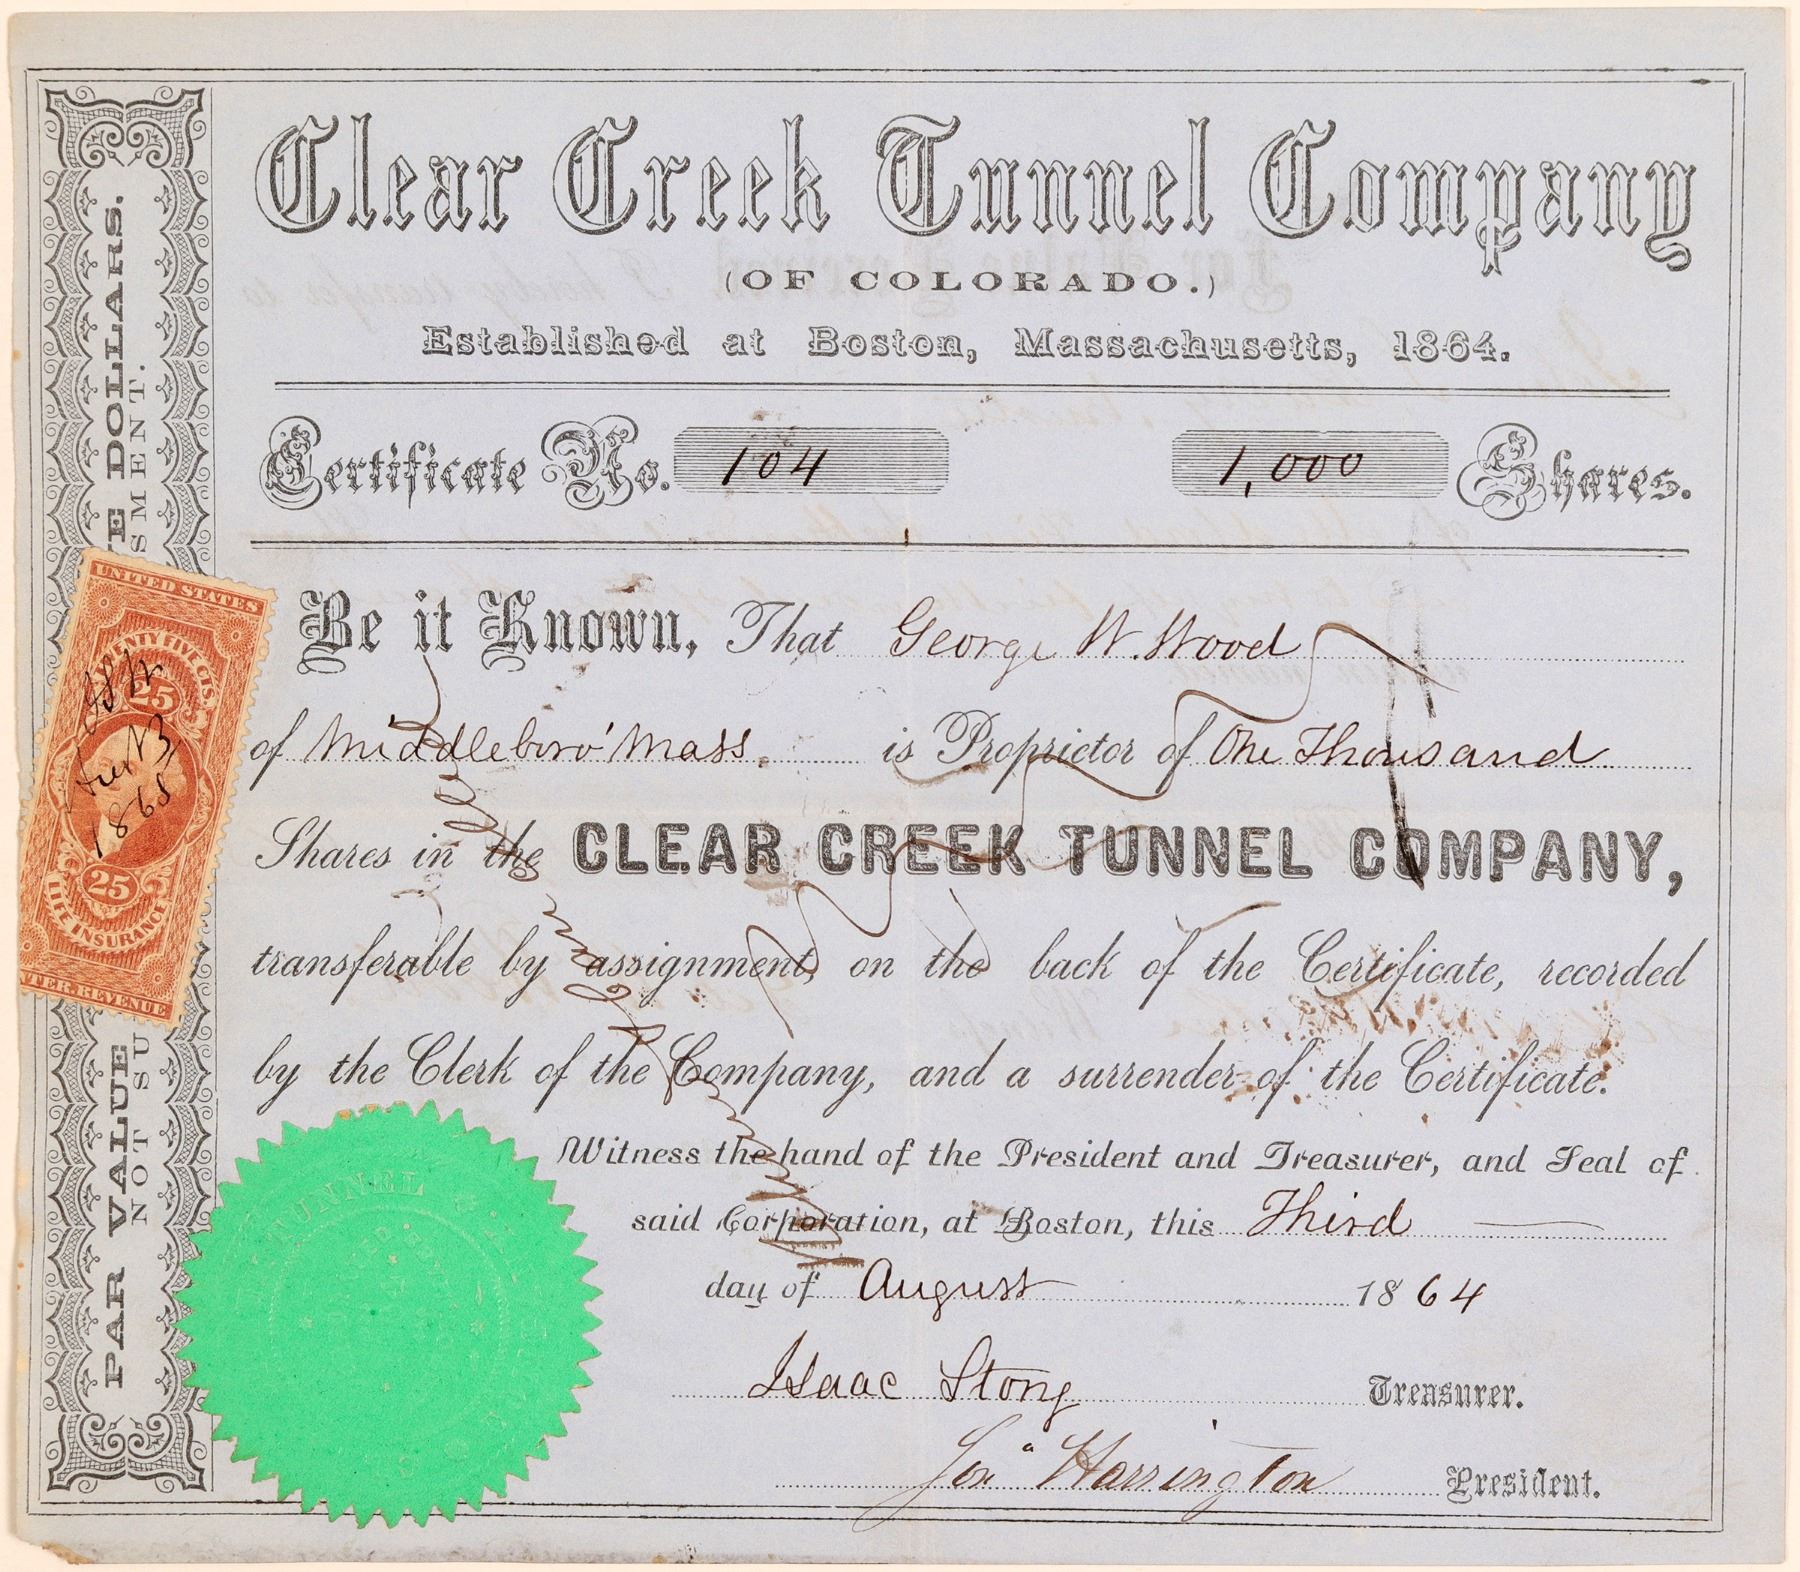 Clear Creek Tunnel Company
(OF COLORADO.)
Established at Boston, Massachusetts, 1864.
Certificate No. 104 1,000 Shares.
Be it Known, That George W. Wood
of Middleboro' Mass. is Proprietor of One Thousand
Shares in the CLEAR CREEK TUNNEL COMPANY,
transferable by assignment, on the back of the Certificate, recorded
by the Clerk of the Company, and a surrender of the Certificate.
Witness the hand of the President and Treasurer, and Seal of
said Corporation, at Boston, this Third
day of August 1864
Isaac Story Treasurer.
Jonª Harrington President.
PAR VALUE E DOLLARS.
NOT SU SMENT.
UNITED STATES
TWENTY FIVE CTS.
25
1865
25
LIFE INSURANCE
TER. REVENUE
TUNNEL